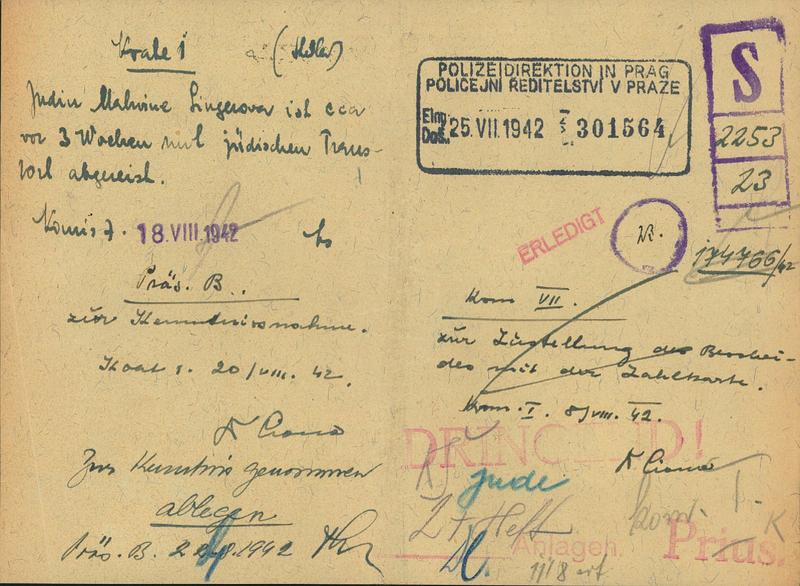 (Hilla)
Jüdin Malwine Singerova ist cca
vor 3 Wochen mit jüdischen Trans-
port abgereist.
Komis 7. 18. VIII. 1942
Präs. B.
zur Kenntnisnahme.
20/VIII. 42.
Zur Kenntnis genommen
ablegen
Präs. B. 1942
POLIZEIDIREKTION IN PRAG
POLICEJNÍ ŘEDITELSTVÍ V PRAZE
Eing.
Doš. 25. VII. 1942 301564
S
2253
23
ERLEDIGT
174766/42
Kom VII.
zur Zustellung des Beschei-
des mit der Zahlkarte.
Kom. I. 8/VIII. 42.
DRINGEND!
Jude
2 + Heft
Anlagen.
Prius.
K